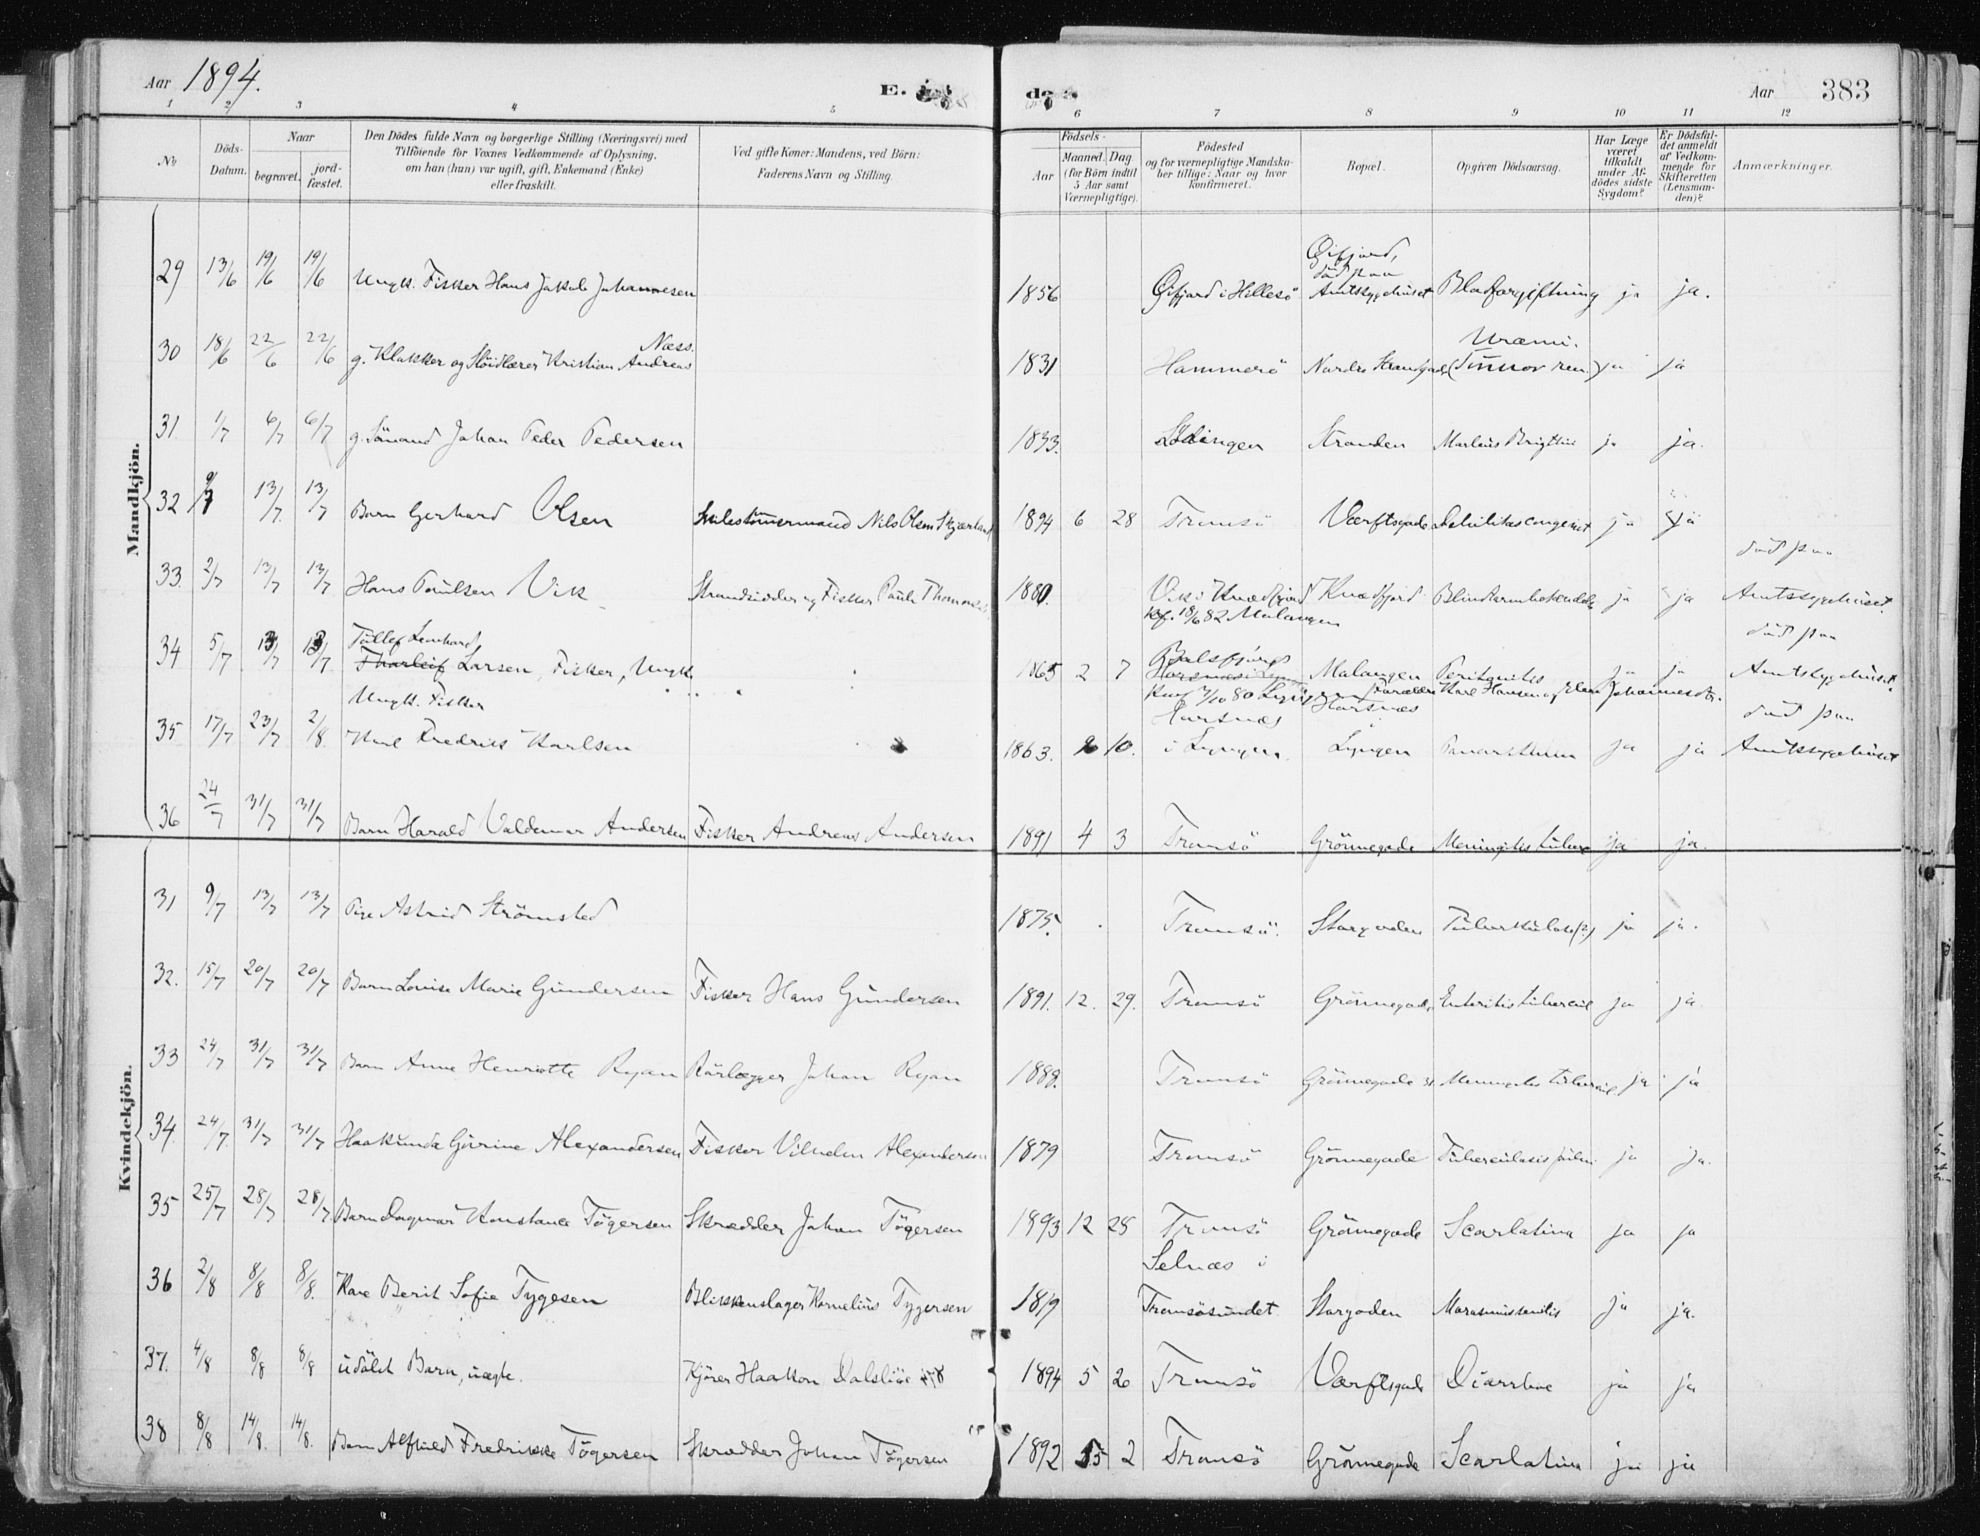 Aar 1894.
E. dø de.
Aar 383
1 2 3 4 5 6 7 8 9 10 11 12
No
Döds-Datum.
Naar
begravet.
jord-fæstet.
Den Dödes fulde Navn og borgerlige Stilling (Næringsvei) med
Tilföiende for Voxnes Vedkommende af Oplysning,
om han (hun) var ugift, gift, Enkemand (Enke)
eller fraskilt.
Ved gifte Koner: Mandens, ved Börn:
Faderens Navn og Stilling.
Födsels-
Aar
Maaned. Dag
(for Börn indtil
5 Aar samt
Værnepligtige).
Födested
og for værnepligtige Mandska-
ber tillige: Naar og hvor
konfirmeret.
Bopel.
Opgiven Dödsaarsag.
Har Læge
været
tilkaldt
under Af-
dödes sidste
Sygdom?
Er Dödsfal-
det anmeldt
af Vedkom-
mende for
Skifteretten
(Lensman-
den)?
Anmærkninger.
Mandkjön.
Gifjord,
död paa
29 13/6 19/6 19/6 Ungk. Fisker Hans Jakob Johannesen 1856 Gifjord i Hillesö Amtssygehuset Blodforgiftning ja ja.
Næss. Uræmi.
30 18/6 22/6 22/6 g. Klokker og Kristian Andreas 1831 Hammerö Nordre Strandgade (Tumor ren.) ja ja
31. 1/7 6/7 6/7 g. Johan Peder Pedersen 1833. Lödingen Stranden Morbus Brigthii ja ja.
32 9/7 13/7. 13/7 Barn Gerhard Olsen Skibstömermand Nils Olsen 1894 6 28 Tromsö Værftsgade Debilitas congenit ja ja
död paa
33. 2/7 13/7 13/7 Hans Paulsen Vik Strandsidder og Fisker Paul 1880. Vik i Kvædfjord Kvædfjord Blindtarmbetændelse ja ja Amtssygehuset.
Kf. 18/6 82 Malangen
död paa
Tollef Leonhard Balsfjord
34 5/7 13/7 13/7 Tharleif Larsen, Fisker, Ungk. 1865 2 7 Malangen Peritonitis ja ja Amtssygehuset.
80 Lyngen Forældre Karl Hansen og Johannesdtr.
Ungk. Fisker Horsnæs Horsnæs död paa
35 17/7 23/7 2/8. Karl Fredrik Karlsen 1863. 10. i Lyngen. Lyngen ja ja Amtssygehuset
36 24/7 31/7 31/7 Barn Harald Valdemar Andersen Fisker Andreas Andersen 1891 4 3 Tromsö Grönnegade Meningitis tuberc ja ja.
Kvindekjön.
31 9/7 13/7 13/7 Pige Astrid Strömsted 1875. Tromsö. Storgaden Tuberkulose(?) ja ja.
32. 15/7 20/7 20/7 Barn Lovise Marie Gundersen Fisker Hans Gundersen 1891. 12. 29. Tromsö Grönnegade Enteritis tubercul ja ja.
33 24/7 31/7 31/7 Barn Anne Henriette Ryan Rörlægger Johan Ryan 1888. Tromsö Grönnegade Meningitis tubercul ja ja
34. 24/7. 31/7 31/7 Haakunda Gurine Alexandersen Fisker Vilhelm Alexandersen 1879 Tromsö Grönnegade Tuberculosis pulm ja ja.
35 25/7 28/7 28/7 Barn Dagmar Konstance Tögersen Skrædder Johan Tögersen 1893 12 28 Tromsö Grönnegade Scarlatina ja ja
Selnæs i
36 2/8 8/8 8/8. Kone Berit Sofie Tygesen Blikkenslager Kornelius Tygersen 1819 Tromsösundet Storgaden Marasmus senilis ja ja.
37. 4/8 8/8 8/8 udöbt Barn, uægte. Kjörer Haakon 1894 5 26 Tromsö Værftsgade Diarrhoe ja ja
38 8/8 14/8. 14/8. Barn Alfhild Fredrikke Tögersen Skrædder Johan Tögersen 1892 5 2 Tromsö Grönnegade Scarlatina ja ja